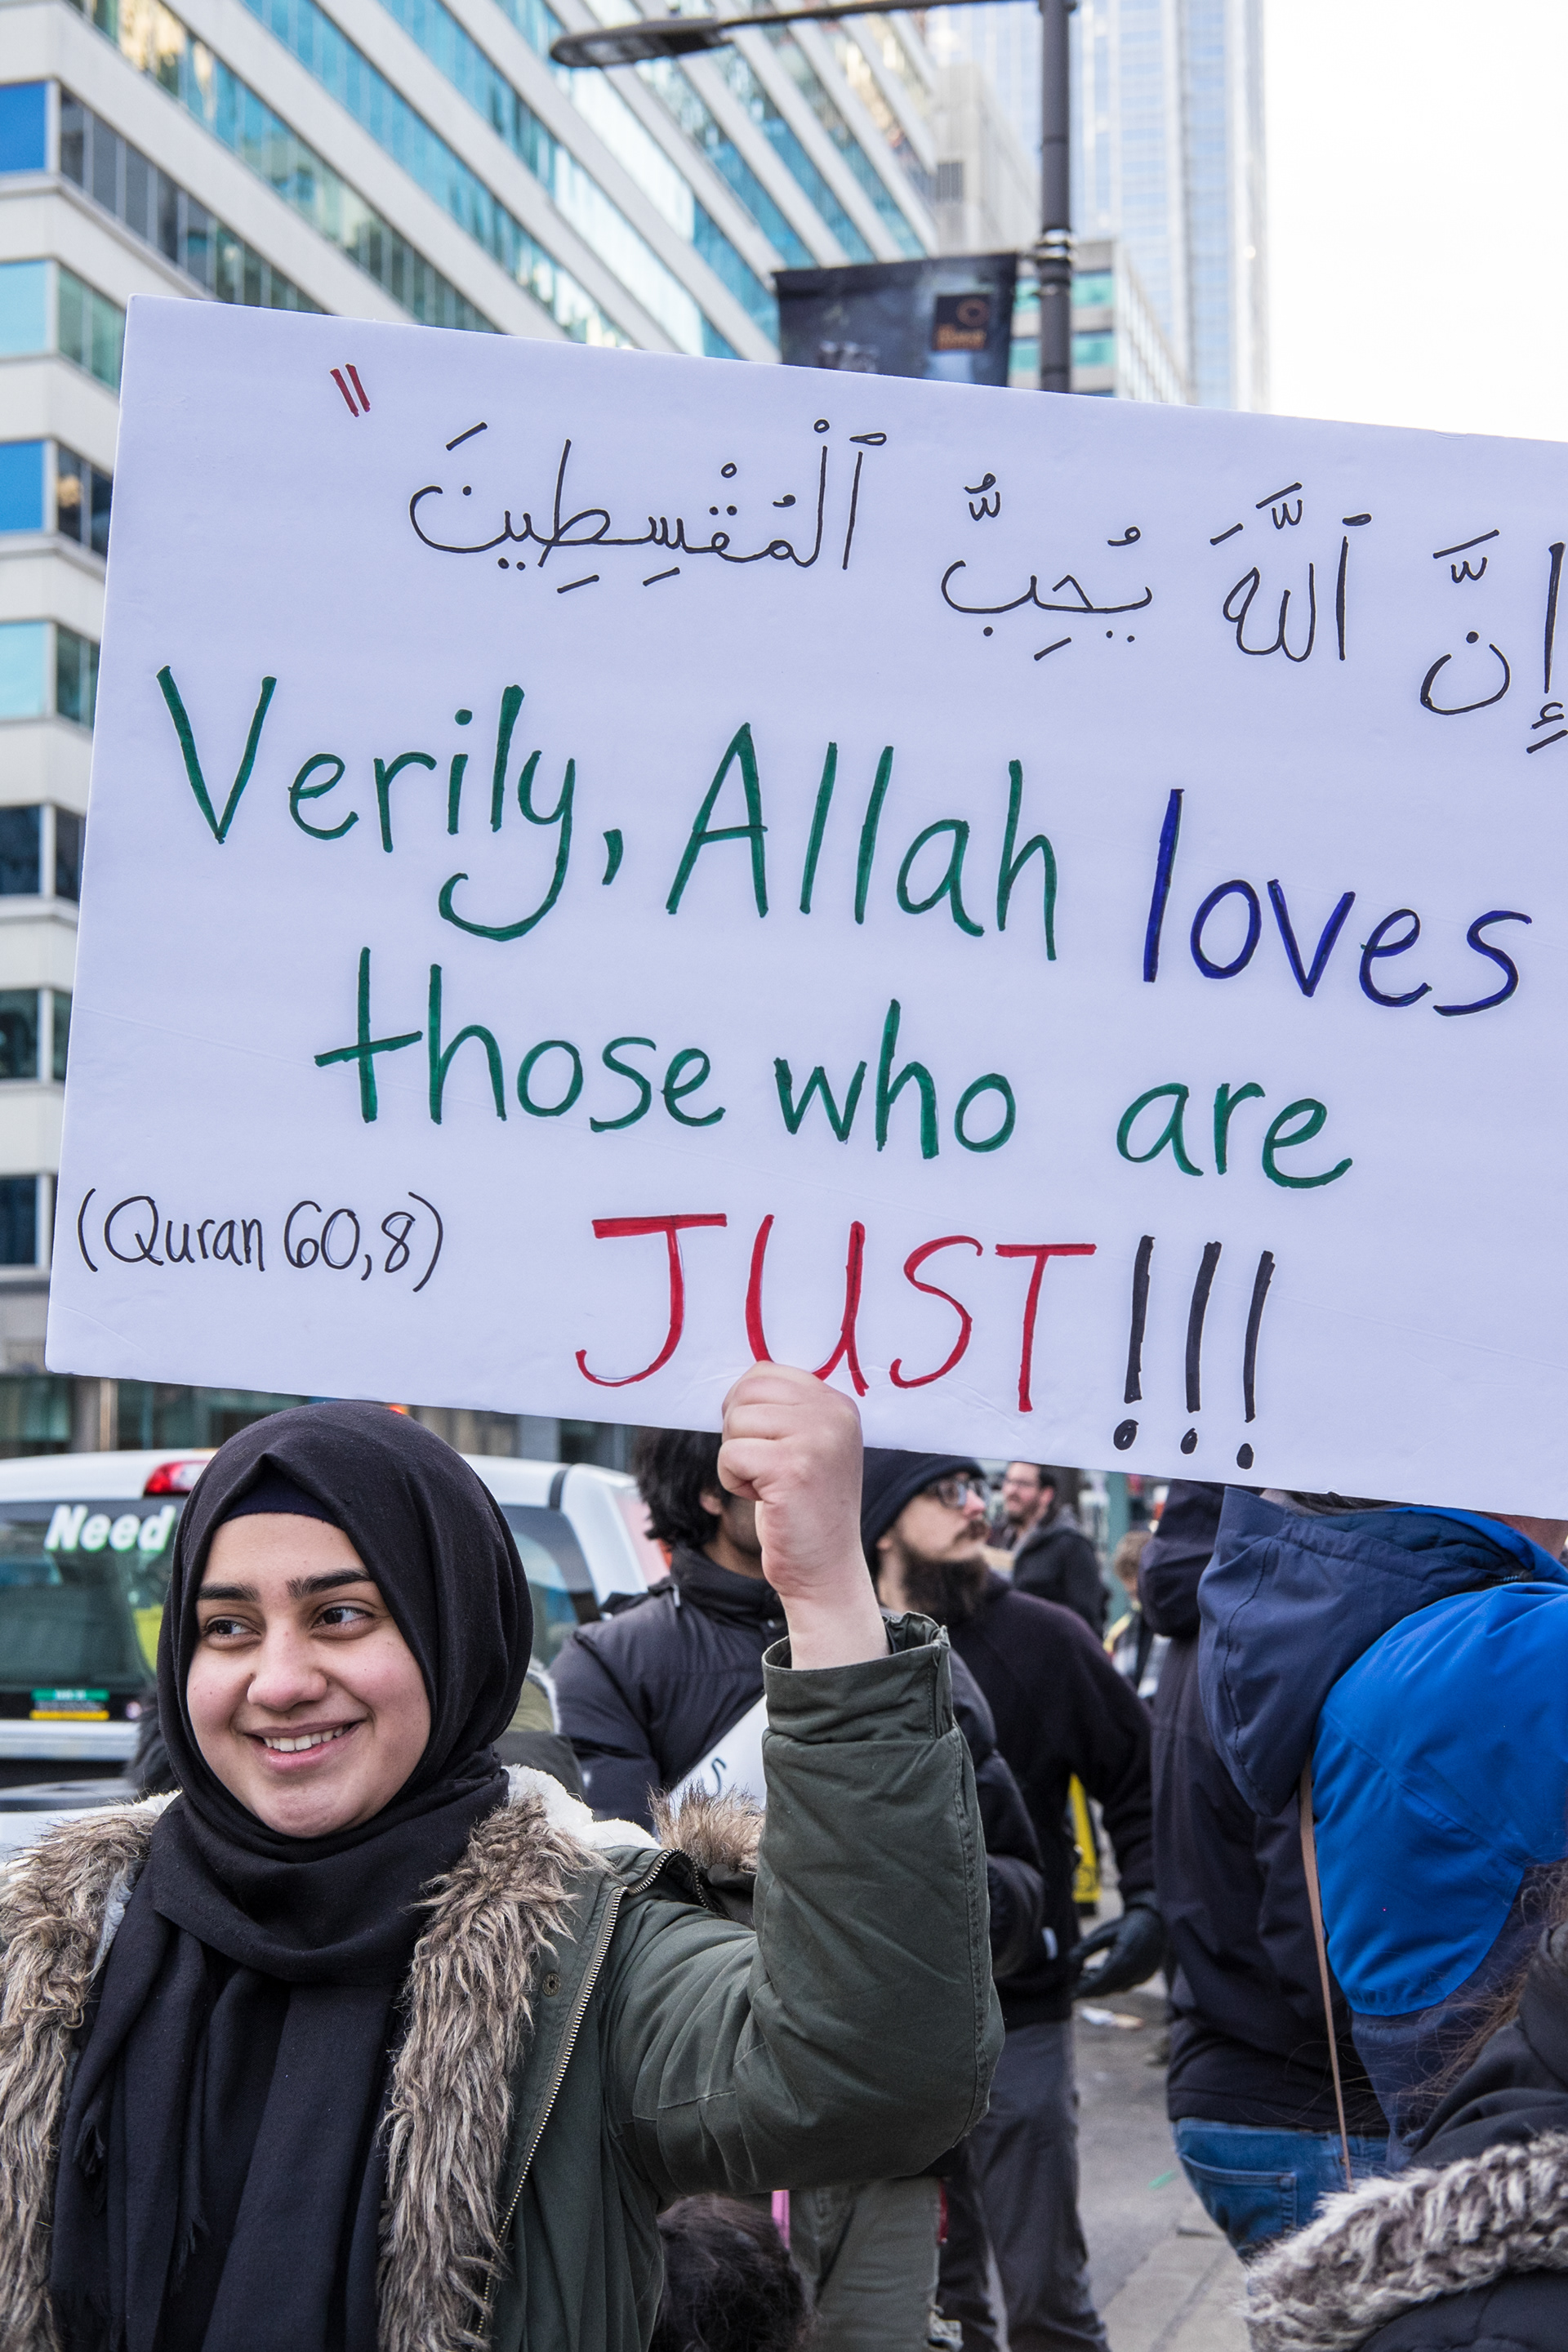 إِنَّ ٱللَّهَ يُحِبُّ ٱلْمُقْسِطِينَ "
Verily, Allah loves
those who are
JUST!!!
(Quran 60,8)
Need
S